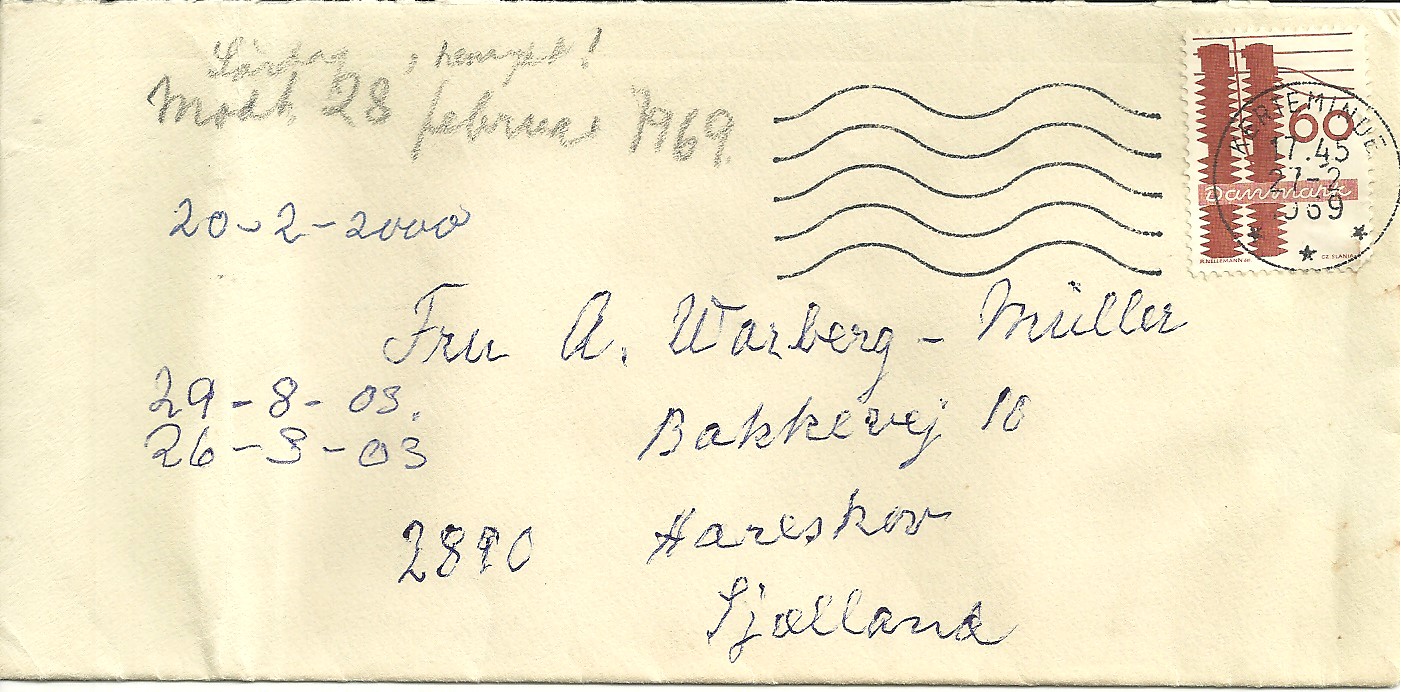 Lördag
Modt. 28 februar 1969.
20-2-2000
KERTEMINDE
60
17.45
27-2
969
Danmark
R. NELLEMANN del.
CZ. SLANIA
Fru A. Warberg-Müller
29-8-03.
Bakkevej 10
26-3-03
2890 Hareskov
Sjælland